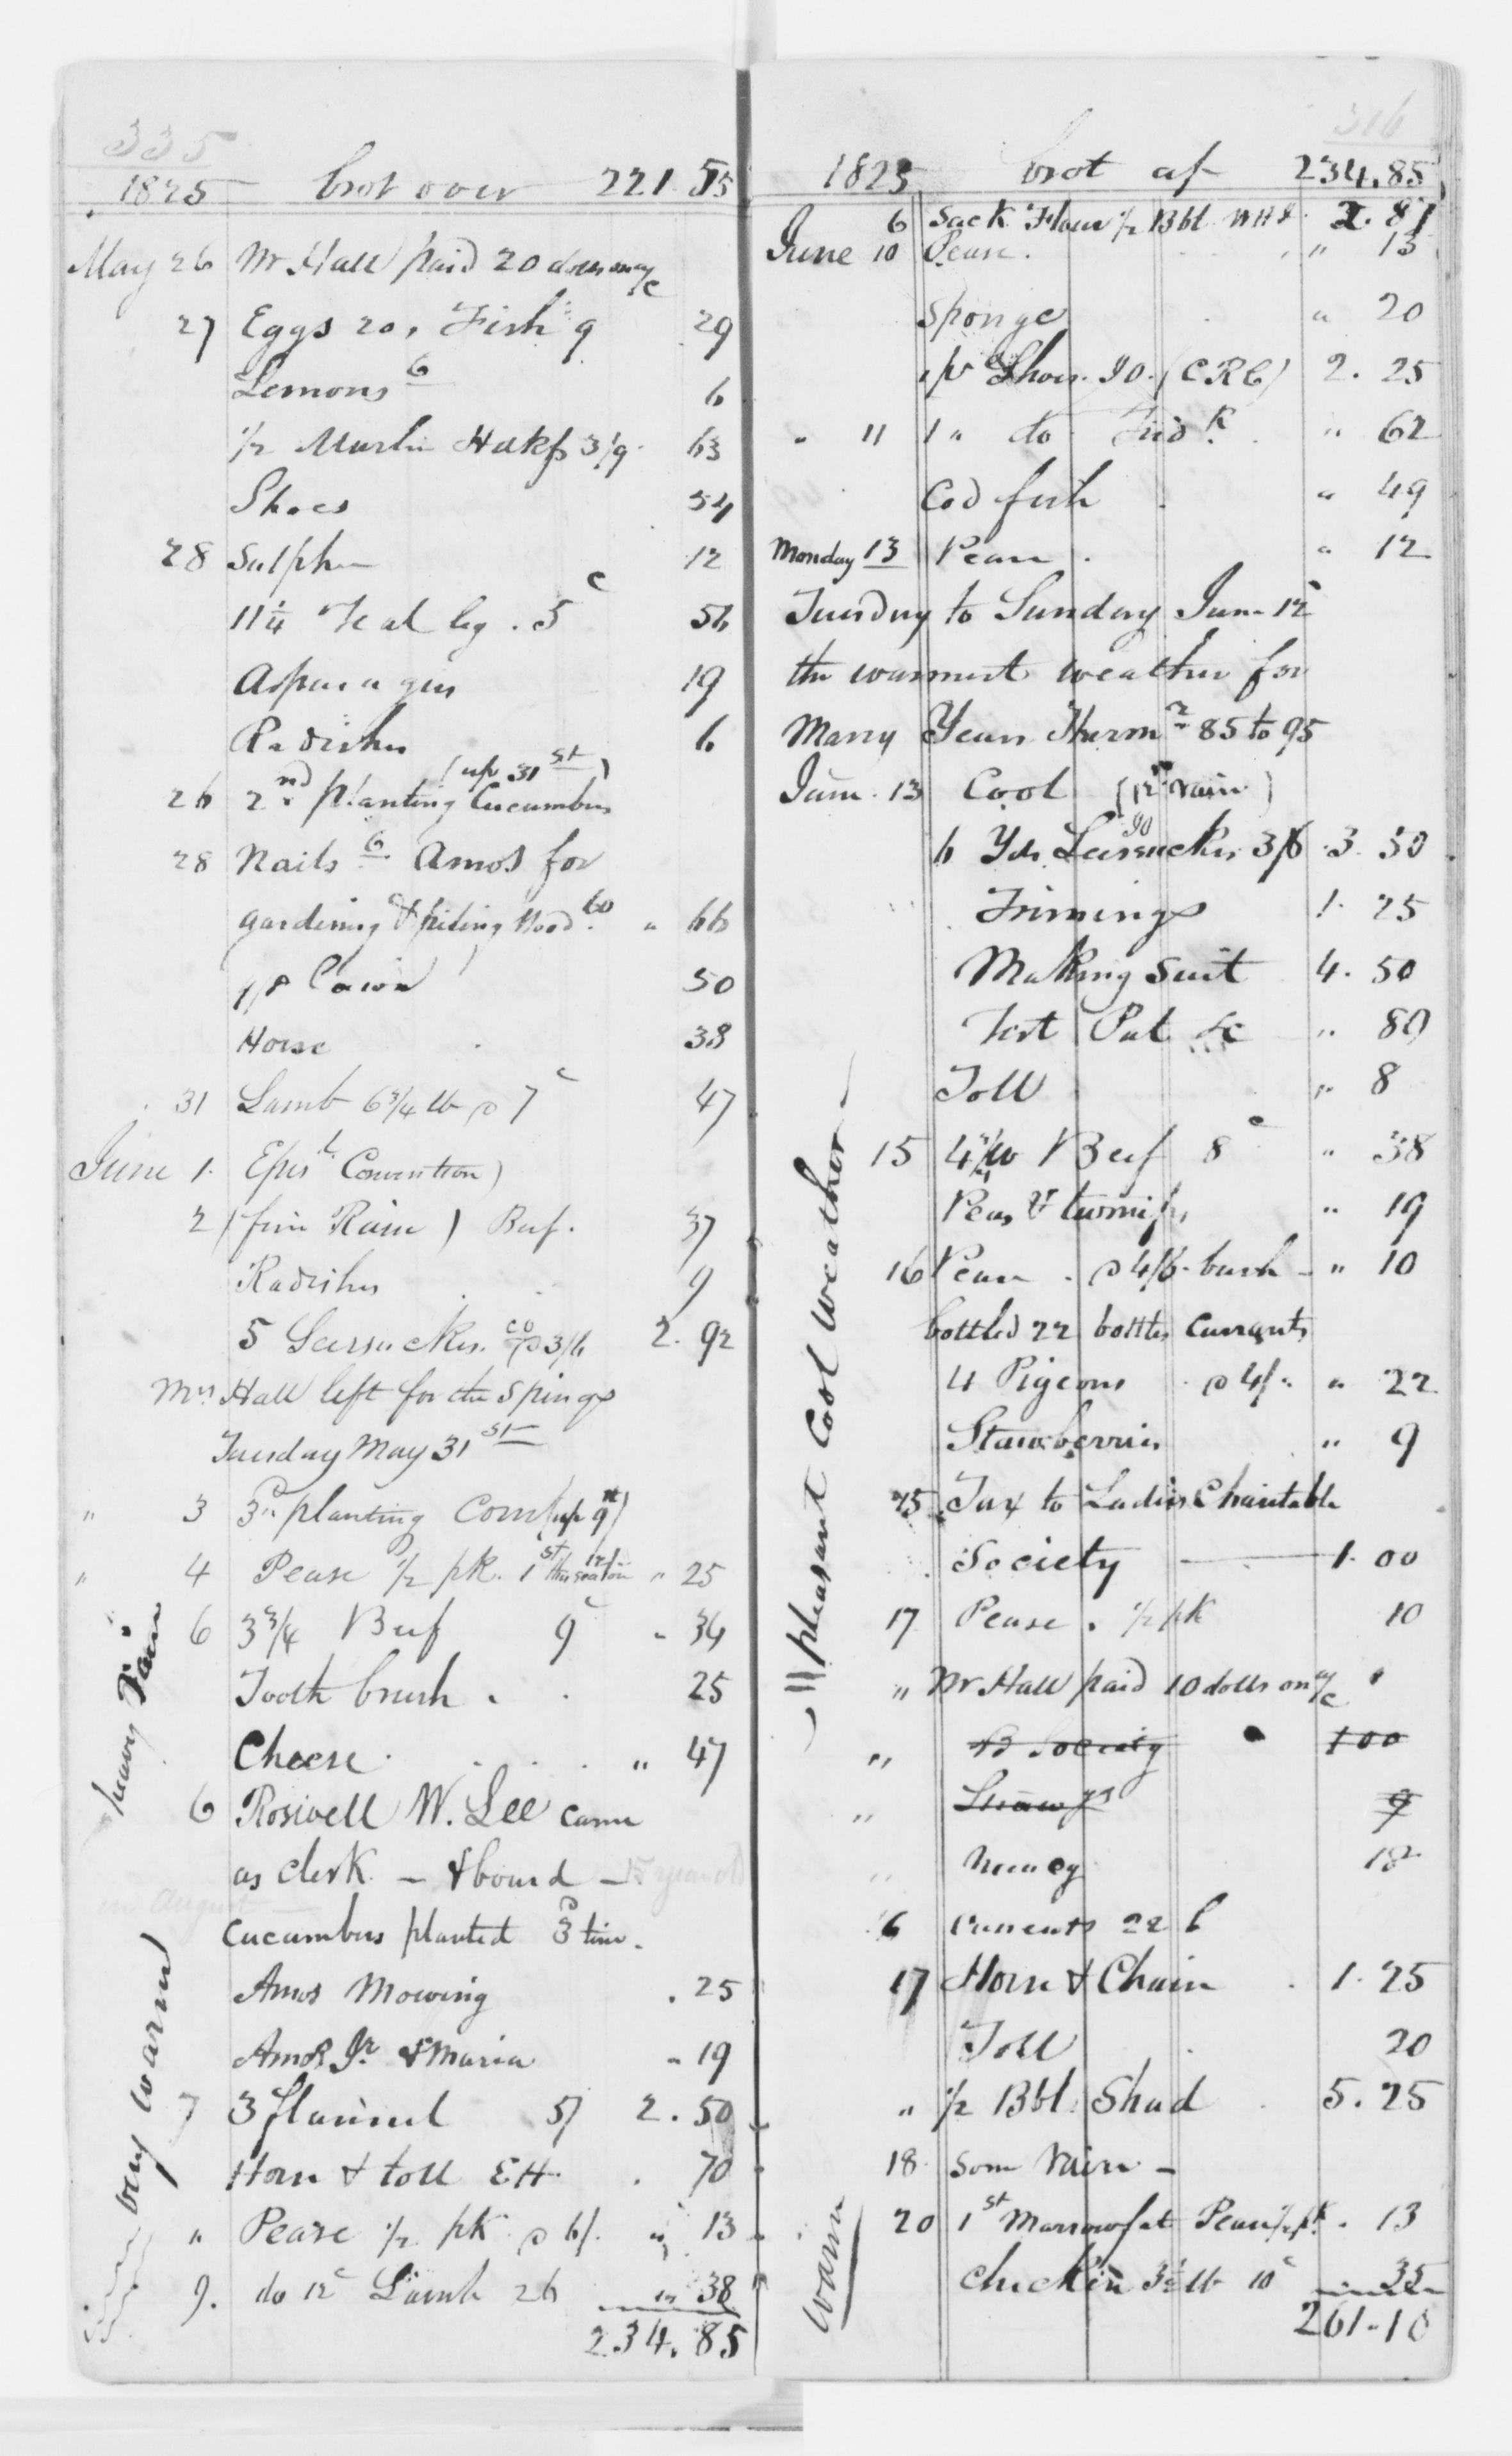 335
1825 brot over 221.55
May 26 Mr Hall paid 20 dolls on a/c
27 Eggs 20, Fish 9 29
Lemons 6 6
1/2 Muslin Hdkfs 3/9 63
Shoes 54
28 Sulphur 12
11 1/4 Veal leg. 5c 56
Asparagus 19
Radishes 6
(up 31st)
26 2nd planting Cucumbers
28 Nails 6 Amos for
gardening & piling Wood 60 " 66
50
Horse 38
31 Lamb 6 3/4 lb @ 7c 47
June 1. Episl Convention)
2 (fine Rain) Beef. 37
Radishes 9
5 Seersucker @ 3/6 2.92
Mrs Hall left for the Springs
Tuesday May 31st
" 3 3d planting Corn (up 9th)
" 4 Pease 1/2 pk. 1st this season " 25
6 3 3/4 Beef 9c " 34
Tooth brush . 25
Cheese . " 47
heavy Rain
6 Roswell W. Lee came
as clerk - & bound - 15 years old
in August -
Cucumbers planted 3d time.
Amos Mowing . 25
Amos Jr & Maria " 19
7 3 flannel 5/ 2.50
Horse & toll EH . 70
" Pease 1/2 pk @ 6/. " 13
9. do 12c Lamb 26 " 38
234.85
very warm
316
1825 brot af 234.85
6 Sack Flour 1/2 Bbl 2.87
June 10 Pease . " 13
Sponge " 20
1 pr Shoes. JO. (CRC) 2.25
" 11 1 " do Fredk " 62
Cod fish " 49
Monday 13 Pease . " 12
Tuesday to Sunday June 12
the warmest weather for
Many Years Thermr 85 to 95
June 13 Cool (12th rain)
6 Yds Seersucker JO 3/6 3.50
Trimings 1.25
Making Suit 4.50
Vest Pat &c " 80
Toll " 8
15 4 3/4 lb Beef 8c " 38
Peas & turnips " 19
16 Pease . @ 4/6 bush - " 10
bottled 22 bottles Currants
4 Pigeons @ 4/. " 22
Strawberries " 9
15 Tax to Ladies Charitable
Society 1.00
17 Pease . 1/2 pk 10
" Mr Hall paid 10 dolls on a/c
" Society 1 00
" Strawbs 9
" 12
16 Currants 22 b
17 Horse & Chair . 1.25
Toll 20
" 1/2 Bbl. Shad 5.25
18 Some Rain -
20 1st Marrowfat Pease 1/2 pk . 13
Chicken 3 1/2 lb 10c 35
261.10
pleasant Cool weather
warm